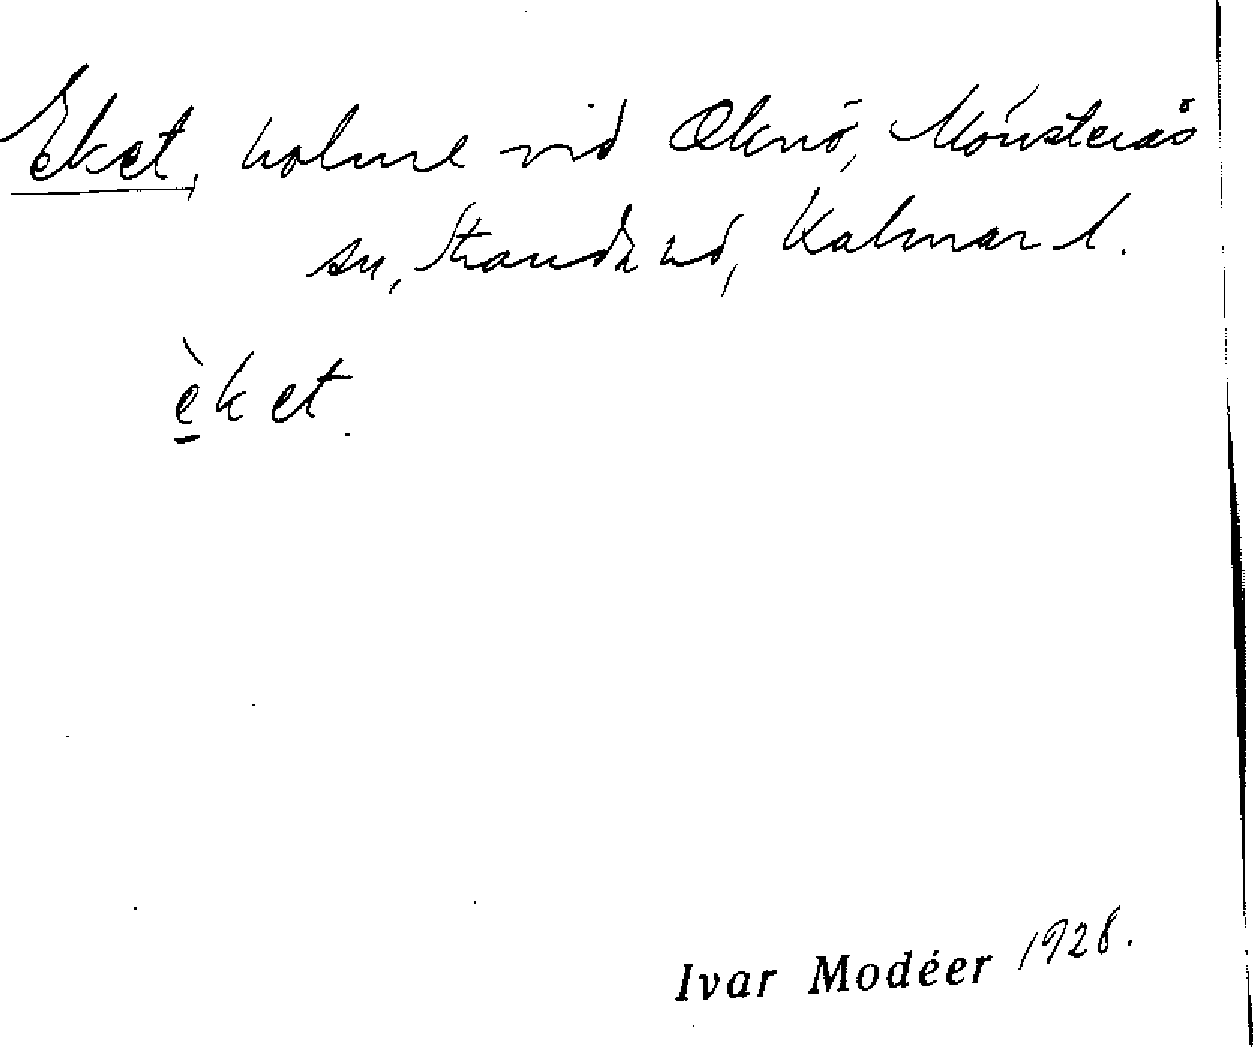 Eket, holme vid Oknö, Mönsterås
sn, Strands hd, Kalmar l.
èket.
Ivar Modéer 1928.